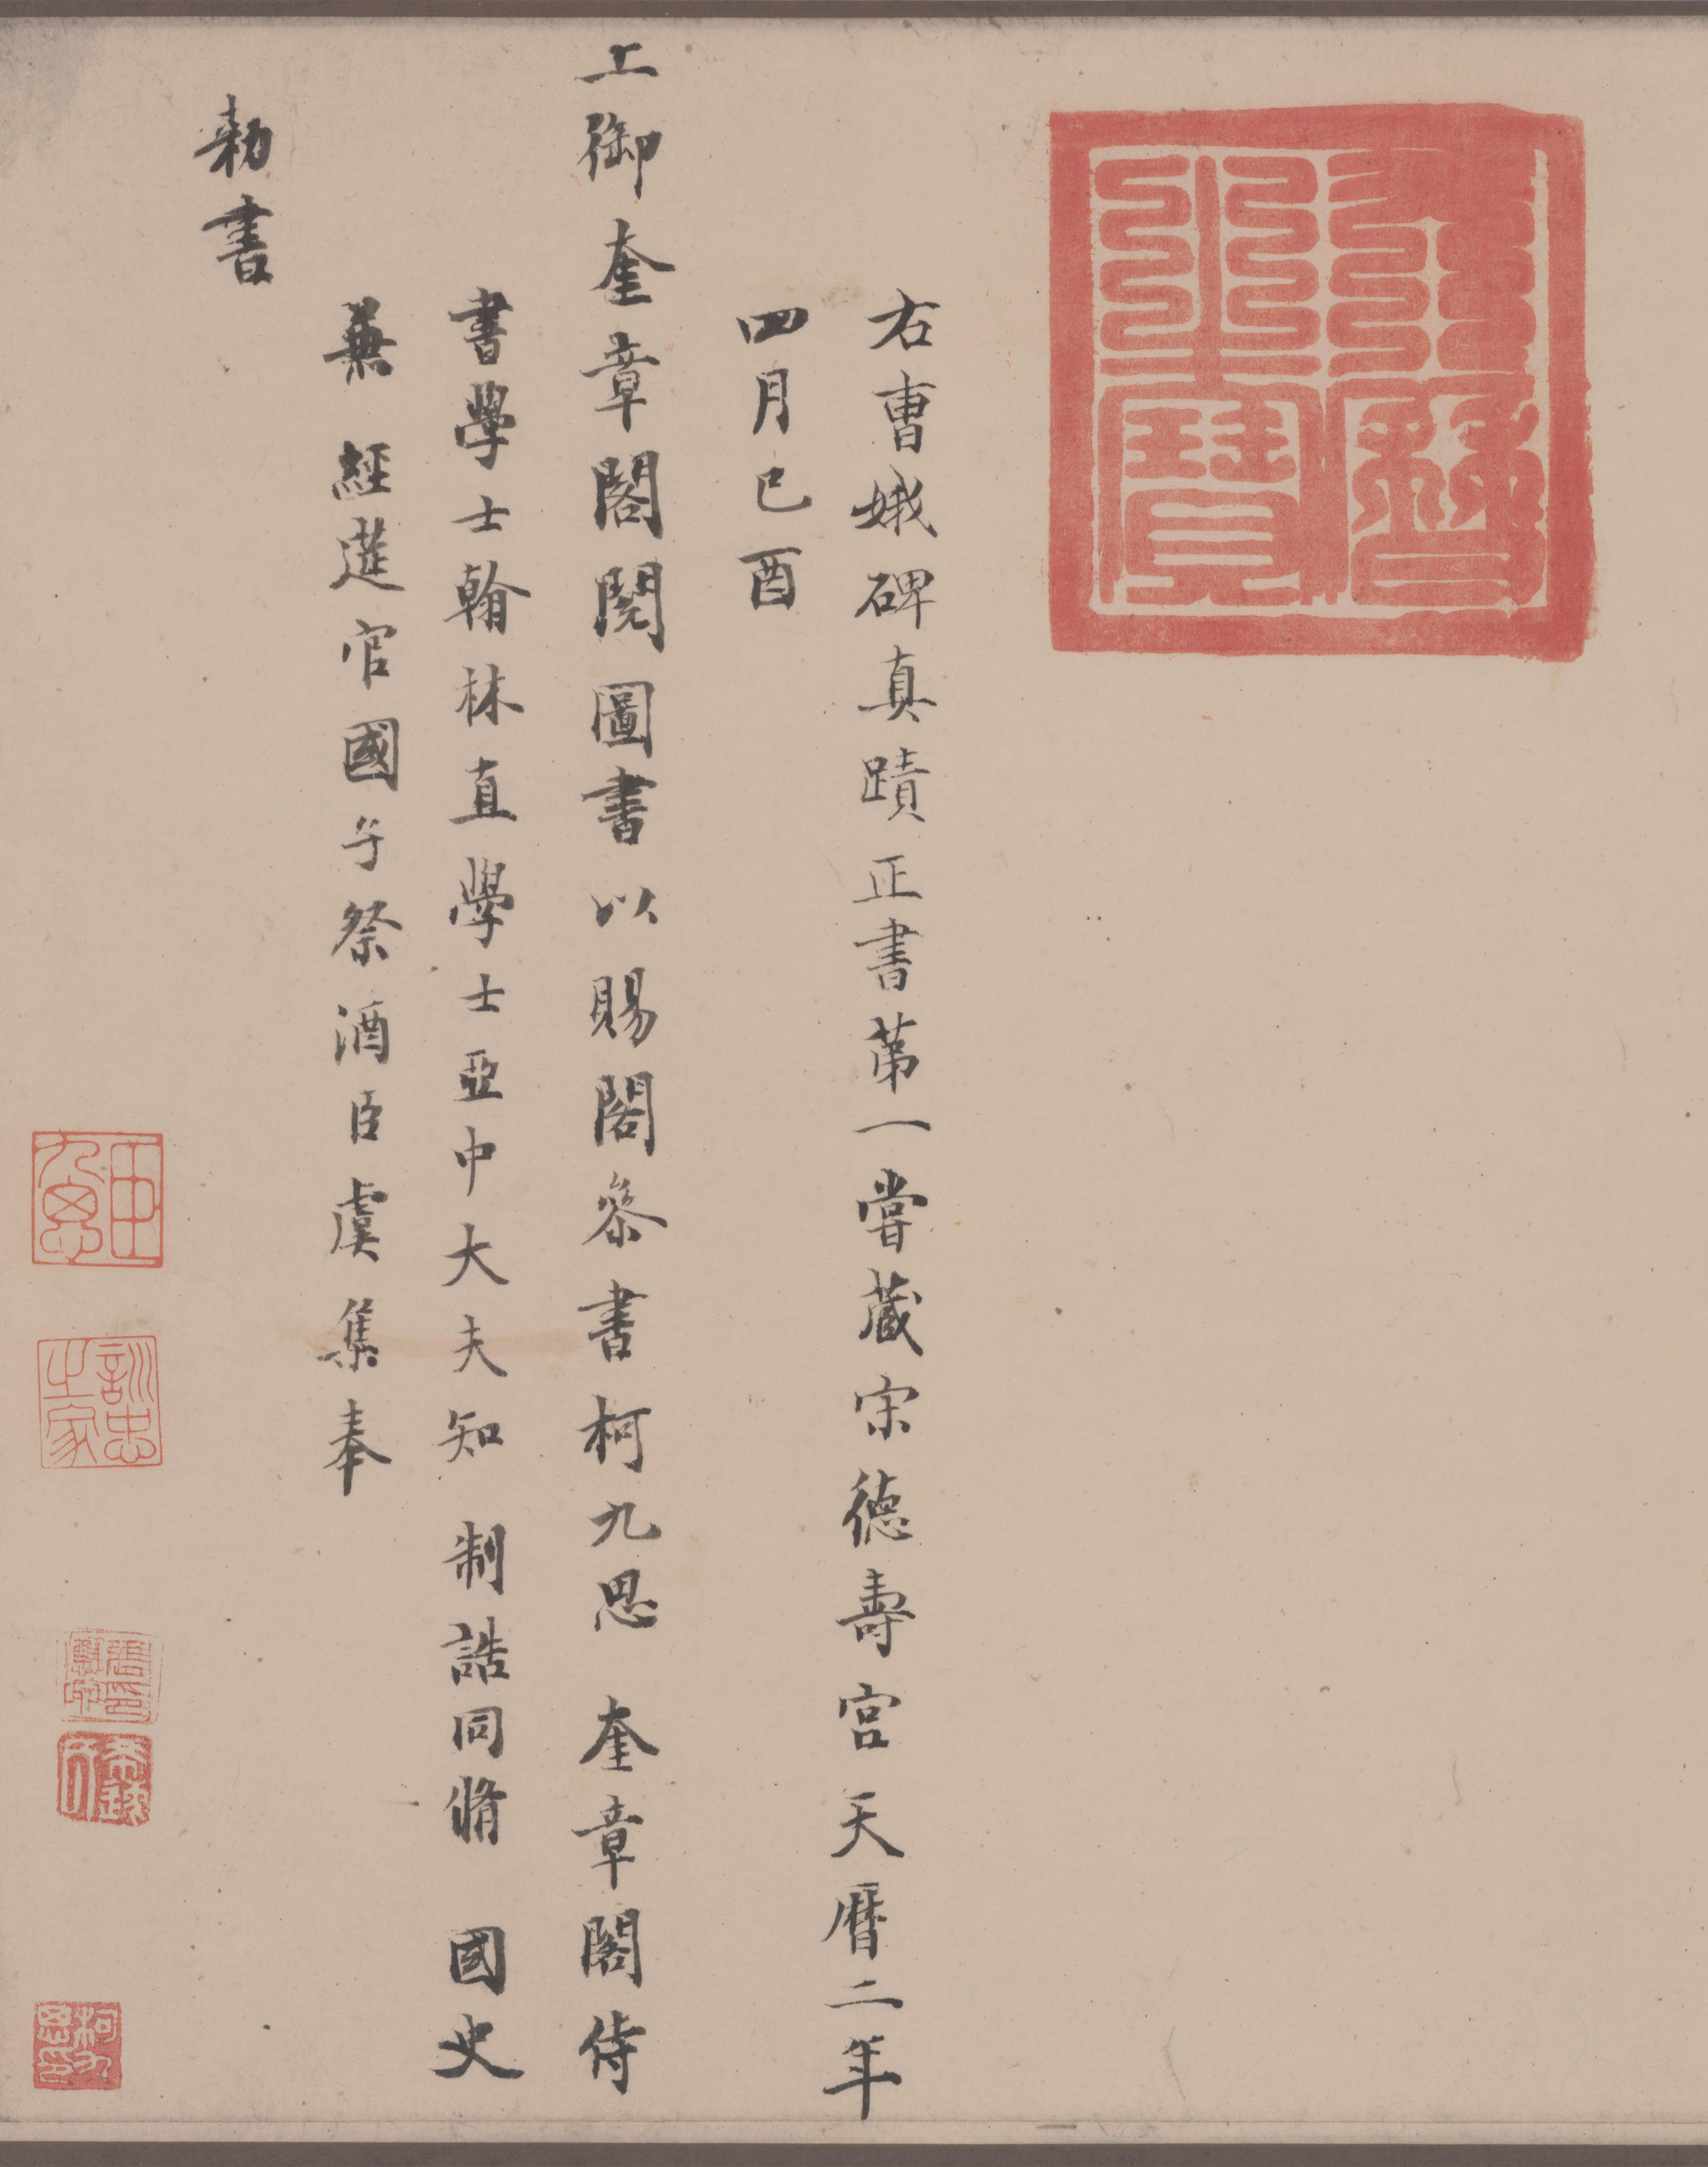 右曹娥碑真蹟正書第一嘗藏宋德壽宮天曆二年
四月己酉
上御奎章閣閱圖書以賜閣參書柯九思奎章閣侍
書學士翰林直學士亞中大夫知制誥同脩國史
兼經筵官國子祭酒臣虞集奉
勑書
天曆之寶
臣九思
訓忠之家
柯九思印